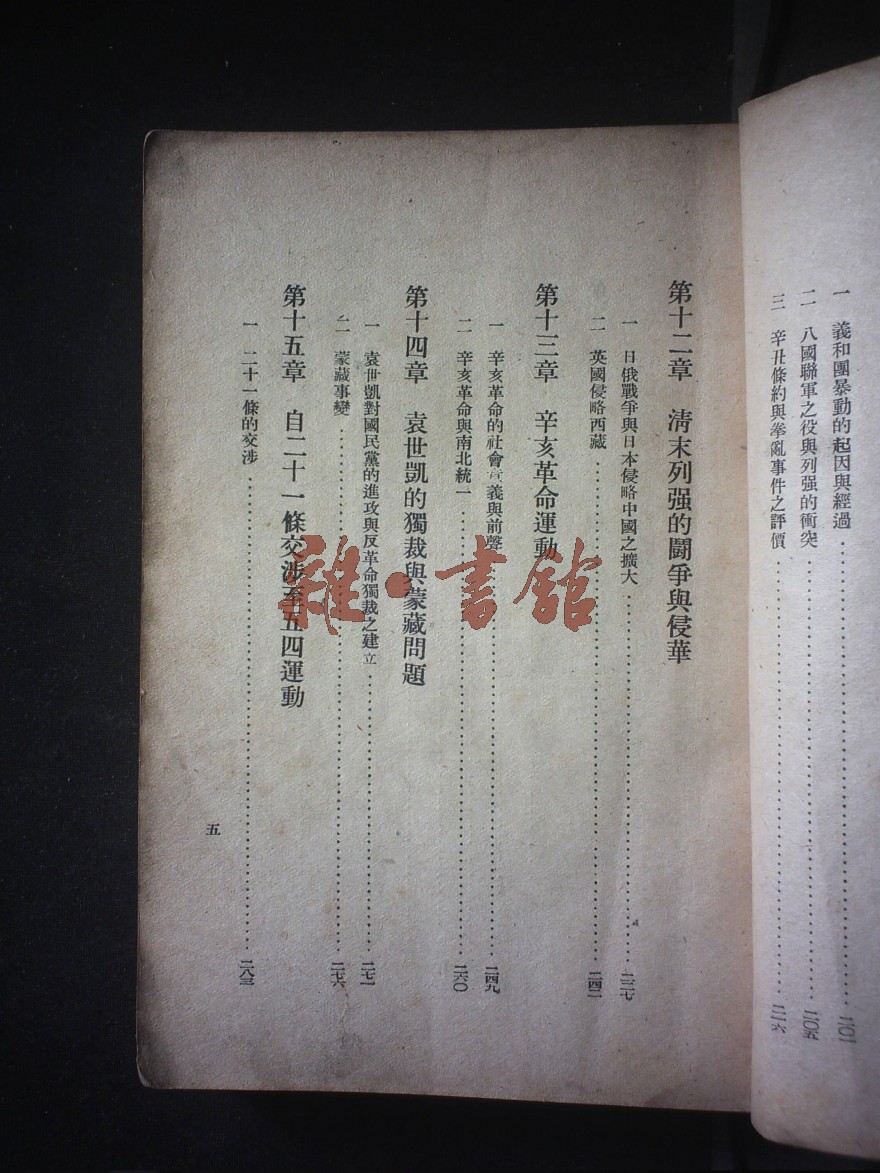 一　義和團暴動的起因與經過……二〇一
二　八國聯軍之役與列强的衝突……二〇五
三　辛丑條約與拳亂事件之評價……二一六
第十二章　清末列强的鬪爭與侵華
一　日俄戰爭與日本侵略中國之擴大……二二七
二　英國侵略西藏……二四二
第十三章　辛亥革命運動
一　辛亥革命的社會意義與前聲……二四九
二　辛亥革命與南北統一……二六〇
第十四章　袁世凱的獨裁與蒙藏問題
一　袁世凱對國民黨的進攻與反革命獨裁之建立……二七一
二　蒙藏事變……二七六
第十五章　自二十一條交涉至五四運動
一　二十一條的交涉……二八三
五
雜·書館